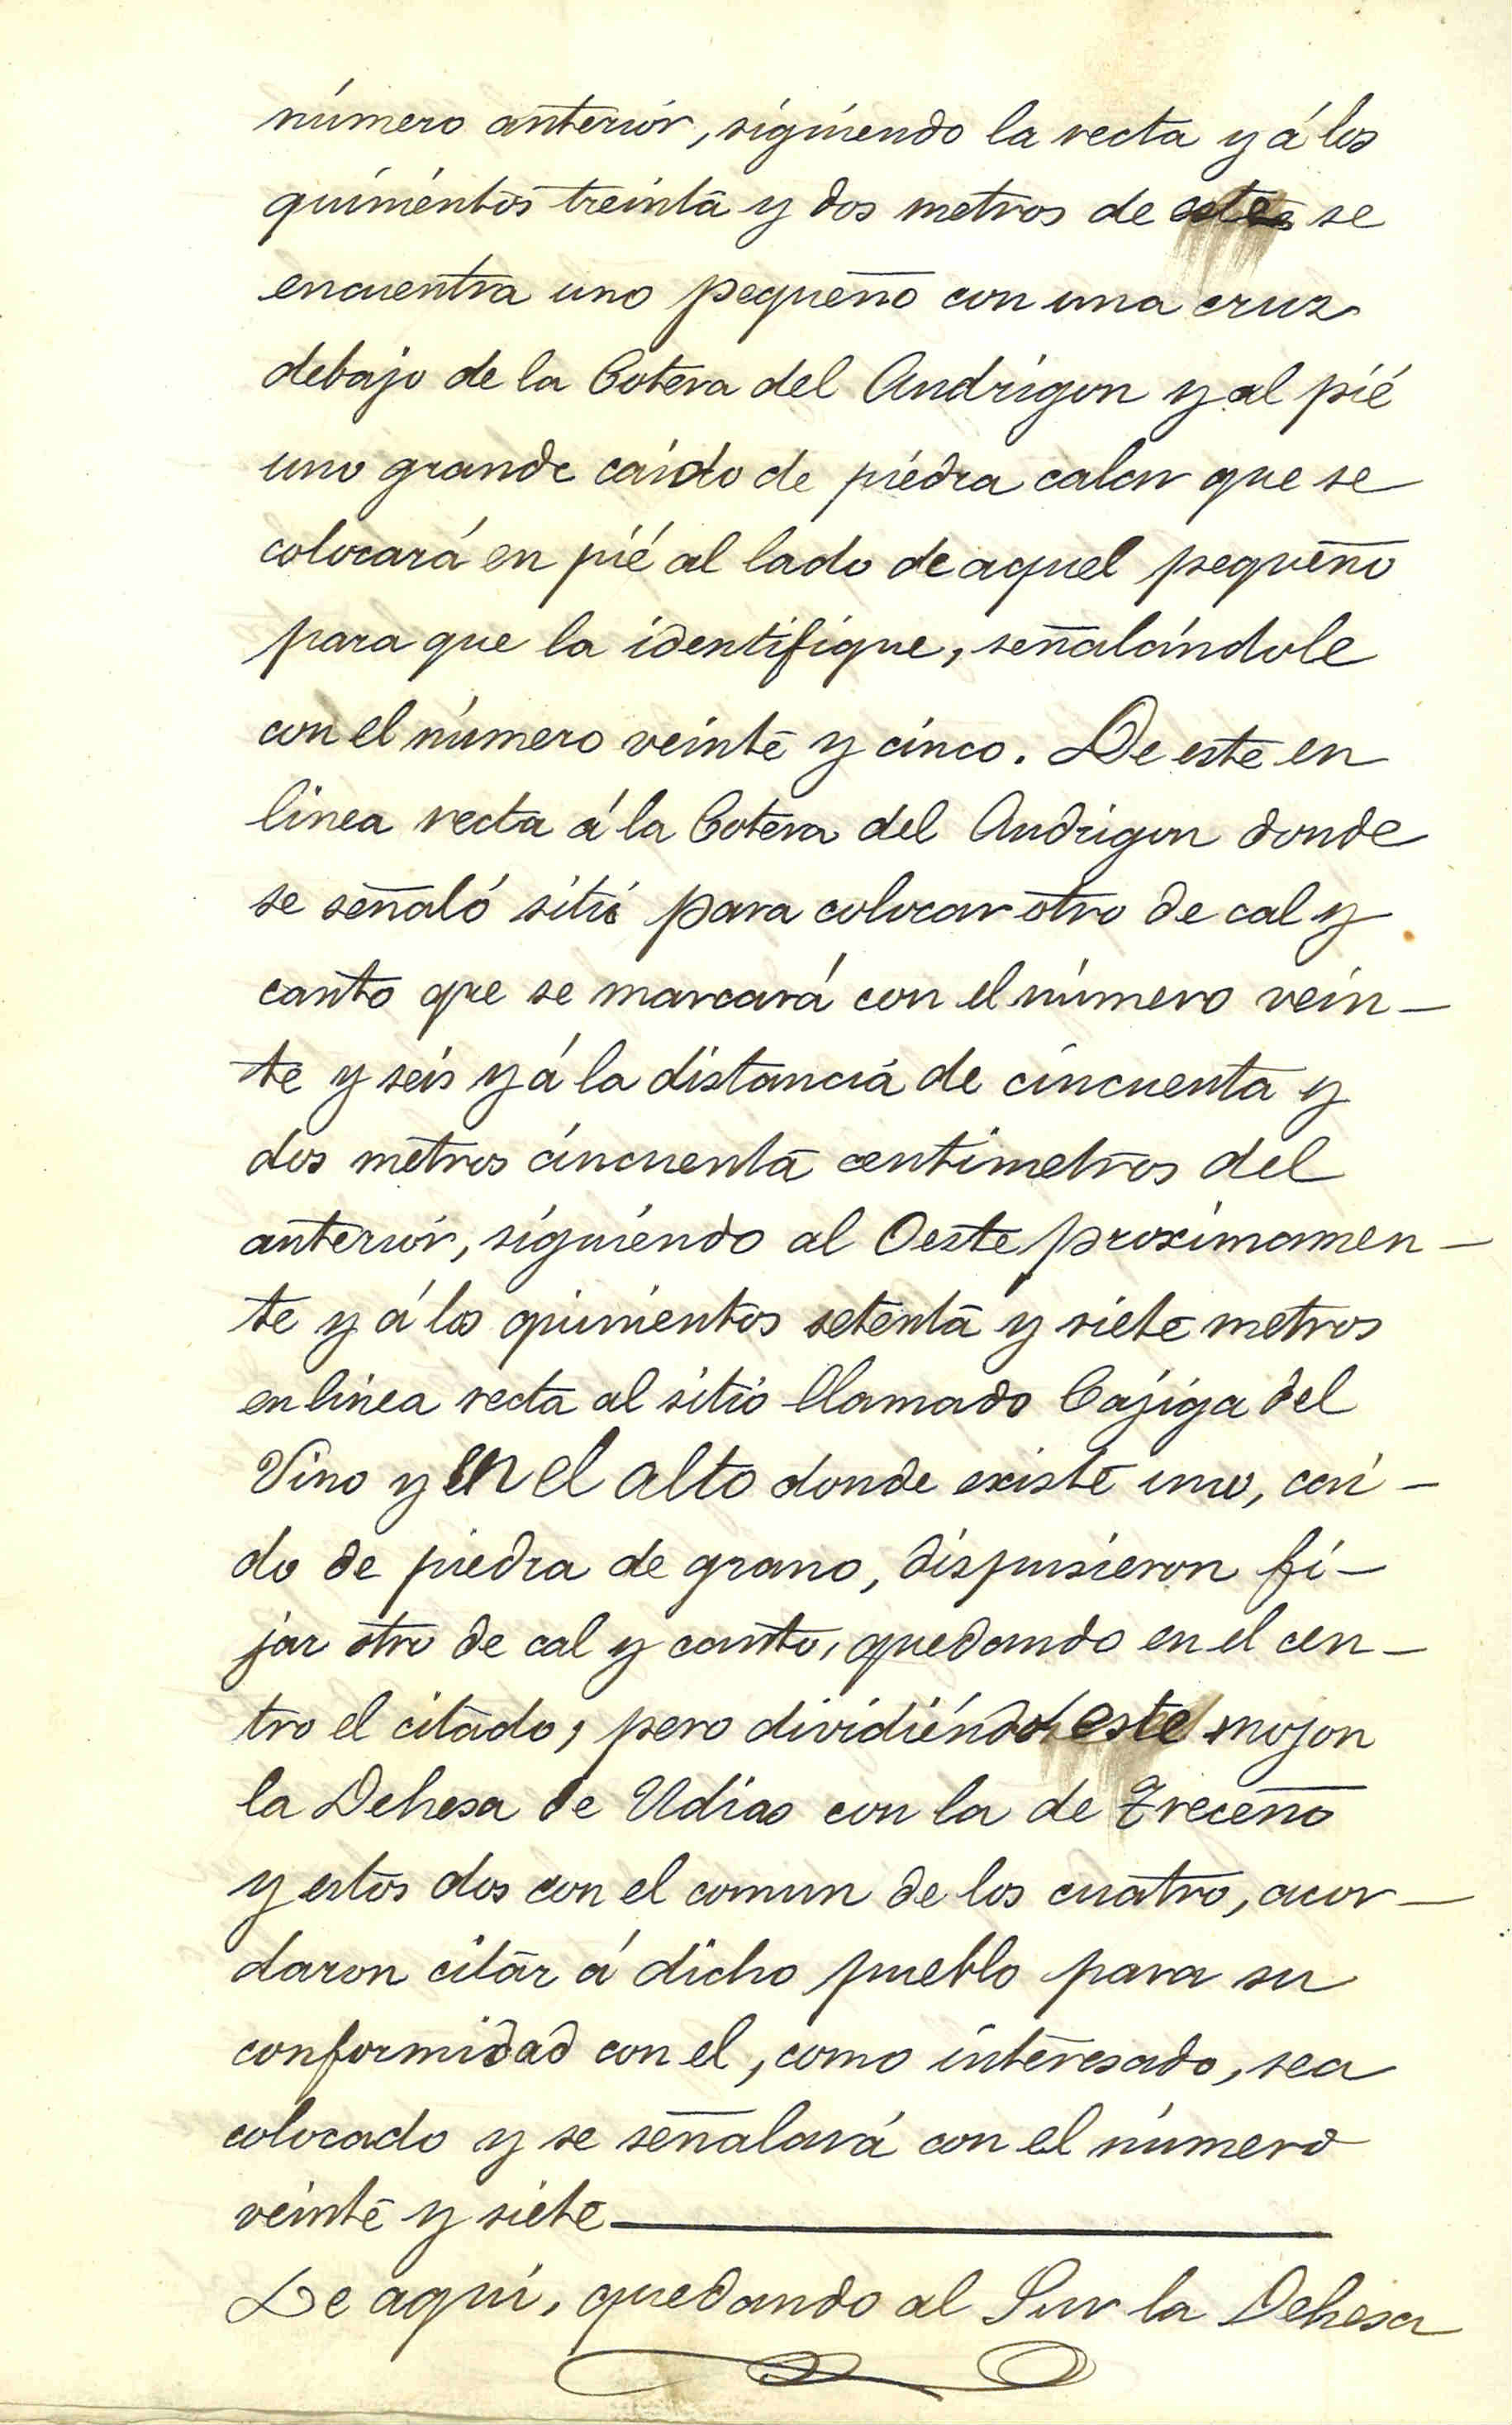 número anterior, siguiendo la recta y á los
quinientos treinta y dos metros de este se
encuentra uno pequeño con una cruz
debajo de la Cotera del Andrigon y al pié
uno grande caido de piedra calar que se
colocará en pié al lado de aquel pequeño
para que la identifique, señalándole
con el número veinte y cinco. De este en
linea recta á la Cotera del Andrigon donde
se señaló sitio para colocar otro de cal y
canto que se marcará con el número vein-
te y seis y á la distancia de cincuenta y
dos metros cincuenta centimetros del
anterior, siguiendo al Oeste proximamen-
te y á los quinientos setenta y siete metros
en linea recta al sitio llamado Cajiga del
Vino y en el alto donde existe uno, cai-
do de piedra de grano, dispusieron fi-
jar otro de cal y canto, quedando en el cen-
tro el citado, pero dividiéndo este mojon
la Dehesa de Udias con la de Treceño
y estos dos con el comun de los cuatro, acor-
daron citar á dicho pueblo para su
conformidad con el, como interesado, sea
colocado y se señalará con el número
veinte y siete
De aqui, quedando al Sur la Dehesa